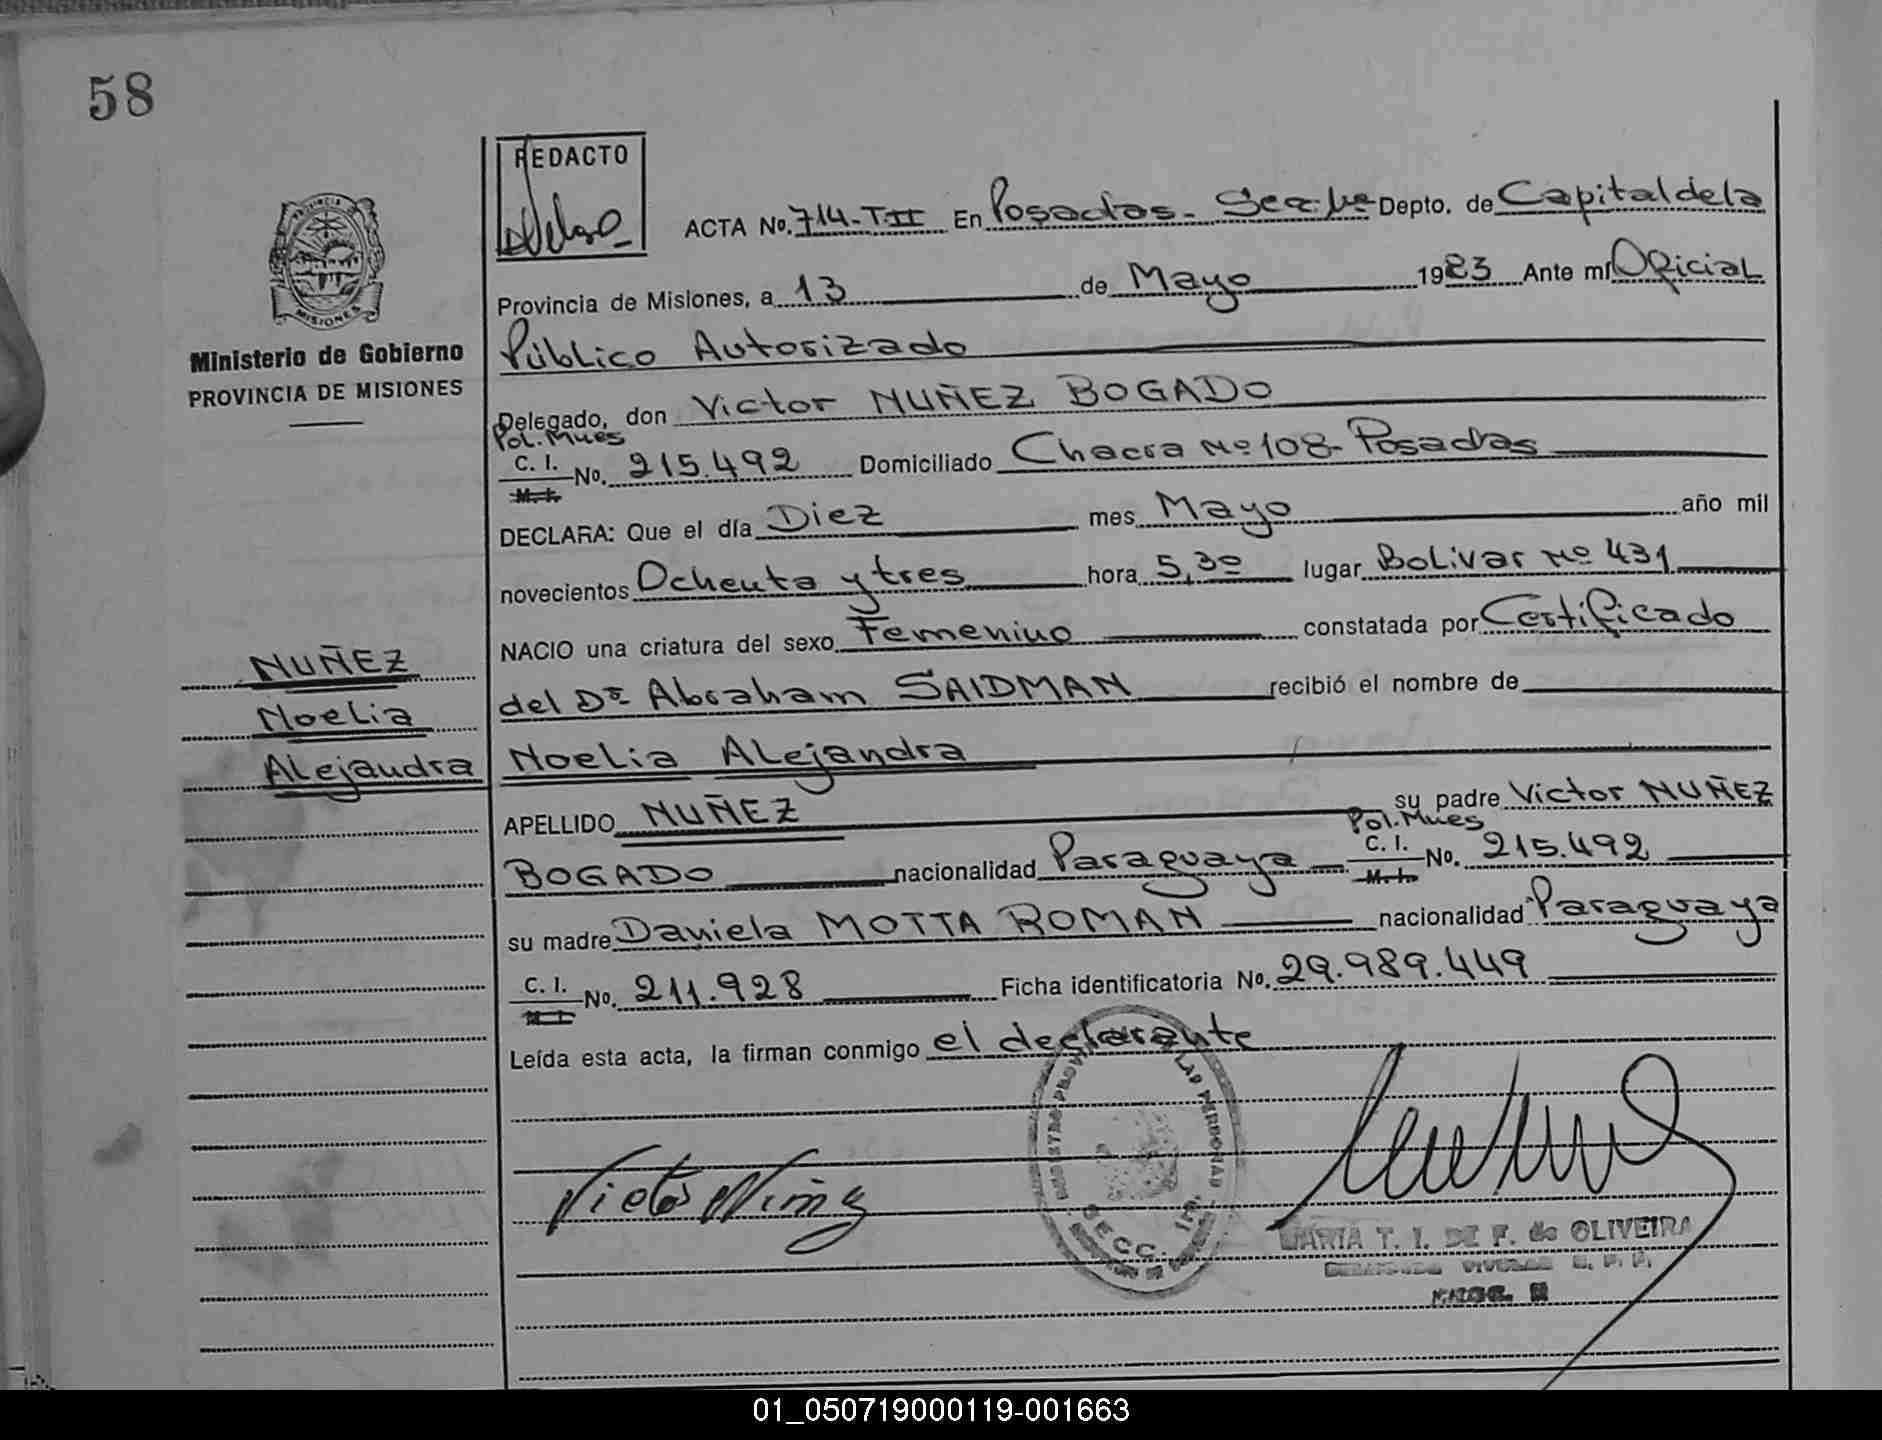 58
REDACTO
ACTA No. 714-TII En Posadas- Secc 1ra Depto. de Capital de la
Provincia de Misiones, a 13 de Mayo 1983 Ante mí Oficial
Público Autorizado
Ministerio de Gobierno
PROVINCIA DE MISIONES
Delegado, don Victor NUÑEZ BOGADO
Pol. Mnes
C. I. No. 215.492 Domiciliado Chacra Nº 108- Posadas
M. I.
DECLARA: Que el día Diez mes Mayo año mil
novecientos Ochenta y tres hora 5,30 lugar Bolivar Nº 431
NACIO una criatura del sexo Femenino constatada por Certificado
del Dr Abraham SAIDMAN recibió el nombre de
NUÑEZ
Noelia
Alejandra
Noelia Alejandra
APELLIDO NUÑEZ su padre Victor NUÑEZ
Pol. Mnes
BOGADO nacionalidad Paraguaya C. I. No. 215.492
M. I.
su madre Daniela MOTTA ROMAN nacionalidad Paraguaya
C. I. No. 211.928 Ficha identificatoria No. 29.989.449
M. I.
Leída esta acta, la firman conmigo el declarante
Victor Nuñez
SECC. 1ra.
MARIA T. I. DE F. de OLIVEIRA
01_050719000119-001663